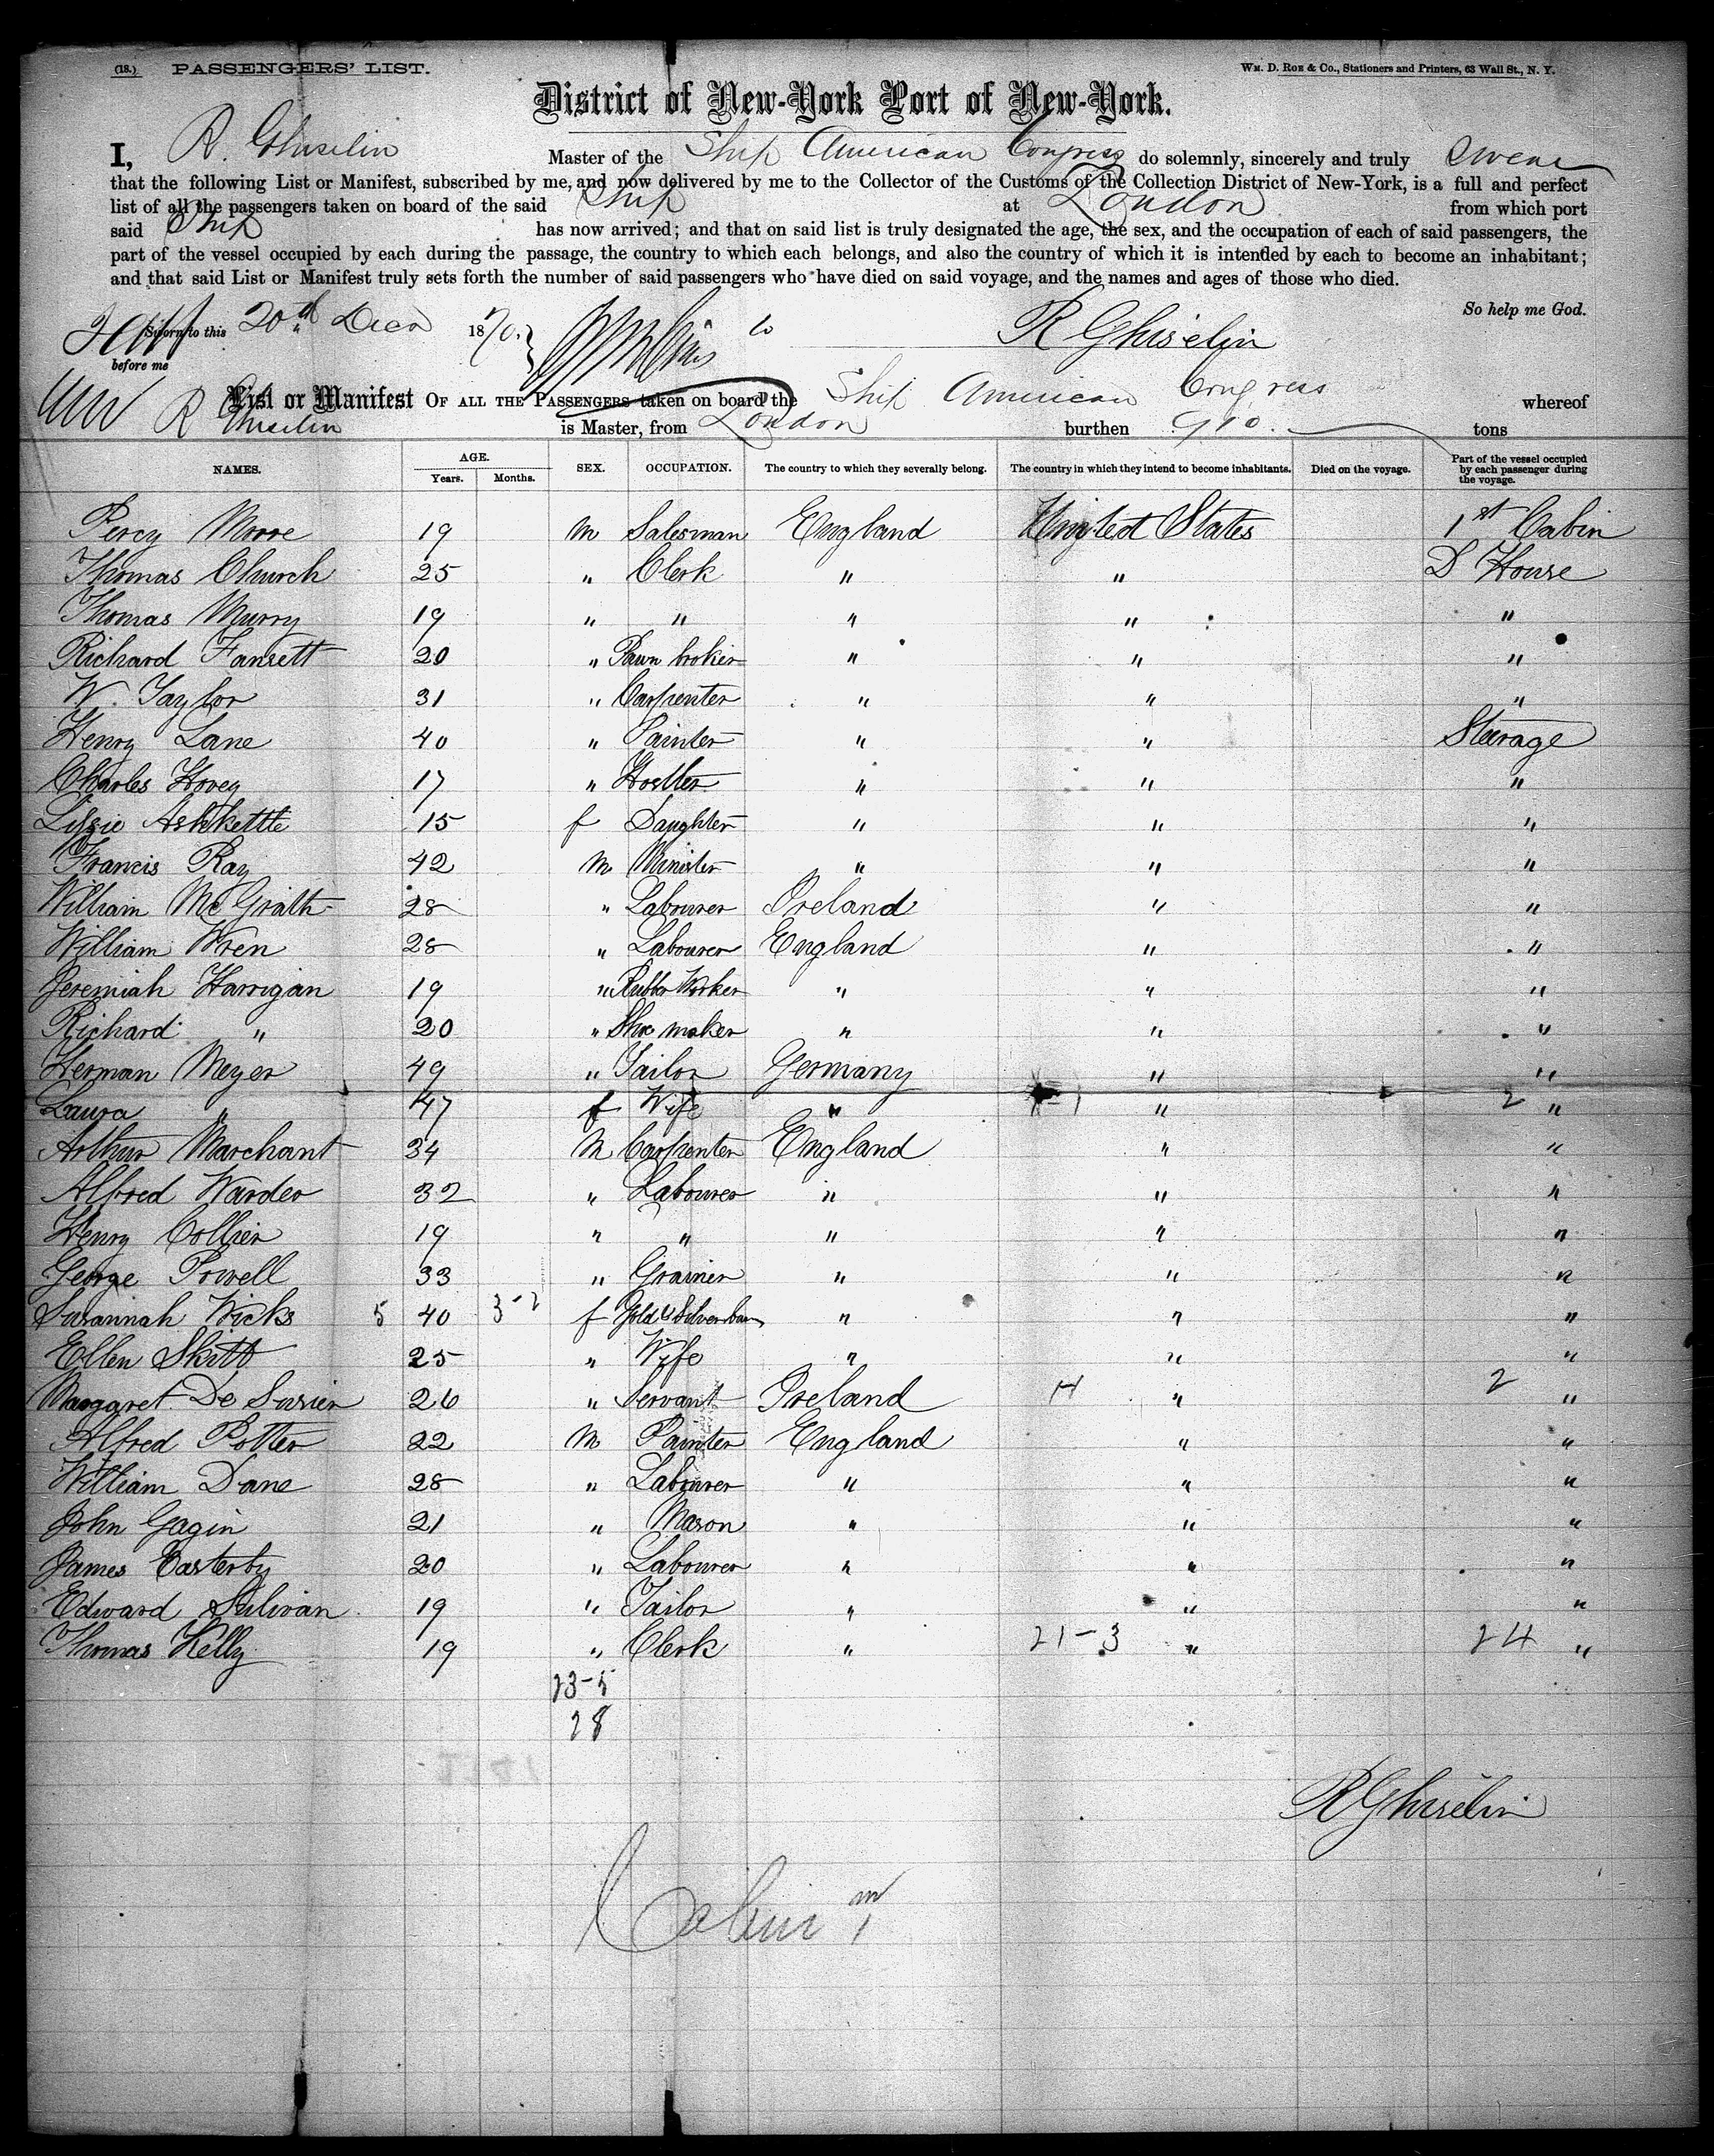 (18.) PASSENGERS' LIST. WM. D. ROE & Co., Stationers and Printers, 63 Wall St., N. Y.
District of New-York Port of New-York.
I, R. Ghiselin Master of the Ship American Congress do solemnly, sincerely and truly swear
that the following List or Manifest, subscribed by me, and now delivered by me to the Collector of the Customs of the Collection District of New-York, is a full and perfect
list of all the passengers taken on board of the said Ship at London from which port
said Ship has now arrived; and that on said list is truly designated the age, the sex, and the occupation of each of said passengers, the
part of the vessel occupied by each during the passage, the country to which each belongs, and also the country of which it is intended by each to become an inhabitant;
and that said List or Manifest truly sets forth the number of said passengers who have died on said voyage, and the names and ages of those who died.
So help me God.
Sworn to this 20th Decr 1870. R Ghiselin
before me
List or Manifest OF ALL THE PASSENGERS taken on board the Ship American Congress whereof
R Ghiselin is Master, from London burthen 910. tons
NAMES. AGE. Years. Months. SEX. OCCUPATION. The country to which they severally belong. The country in which they intend to become inhabitants. Died on the voyage. Part of the vessel occupied by each passenger during the voyage.
Percy Moore 19 m Salesman England United States 1st Cabin
Thomas Church 25 " Clerk " " D House
Thomas Murry 19 " " " " "
Richard Fansett 20 " Pawn broker " " "
W. Taylor 31 " Carpenter " " "
Henry Lane 40 " Painter " " Steerage
Charles Hovey 17 " Hostler " " "
Lizzie Ashkettle 15 f Daughter " " "
Francis Ray 42 m Minister " " "
William McGrath 28 " Labourer Ireland " "
William Wren 28 " Labourer England " "
Jeremiah Harrigan 19 " Rubber Worker " " "
Richard " 20 " Shoe maker " " "
Herman Meyer 49 " Tailor Germany " "
Laura " 47 f Wife " " 2 "
Arthur Marchant 34 m Carpenter England " "
Alfred Warder 32 " Labourer " " "
Henry Collier 19 " " " " "
George Powell 33 " Grainer " " "
Susannah Wicks 5 40 3-2 f Gold & Silver " " "
Ellen Skitt 25 " Wife " " "
Margaret De Susier 26 " Servant Ireland H " 2 "
Alfred Potter 22 m Painter England " "
William Dane 28 " Labourer " " "
John Gagin 21 " Mason " " "
James Easterby 20 " Labourer " " "
Edward Sulivan 19 " Tailor " " "
Thomas Kelly 19 " Clerk " 21-3 " 24 "
23-5
28
R Ghiselin
Cabin m 1